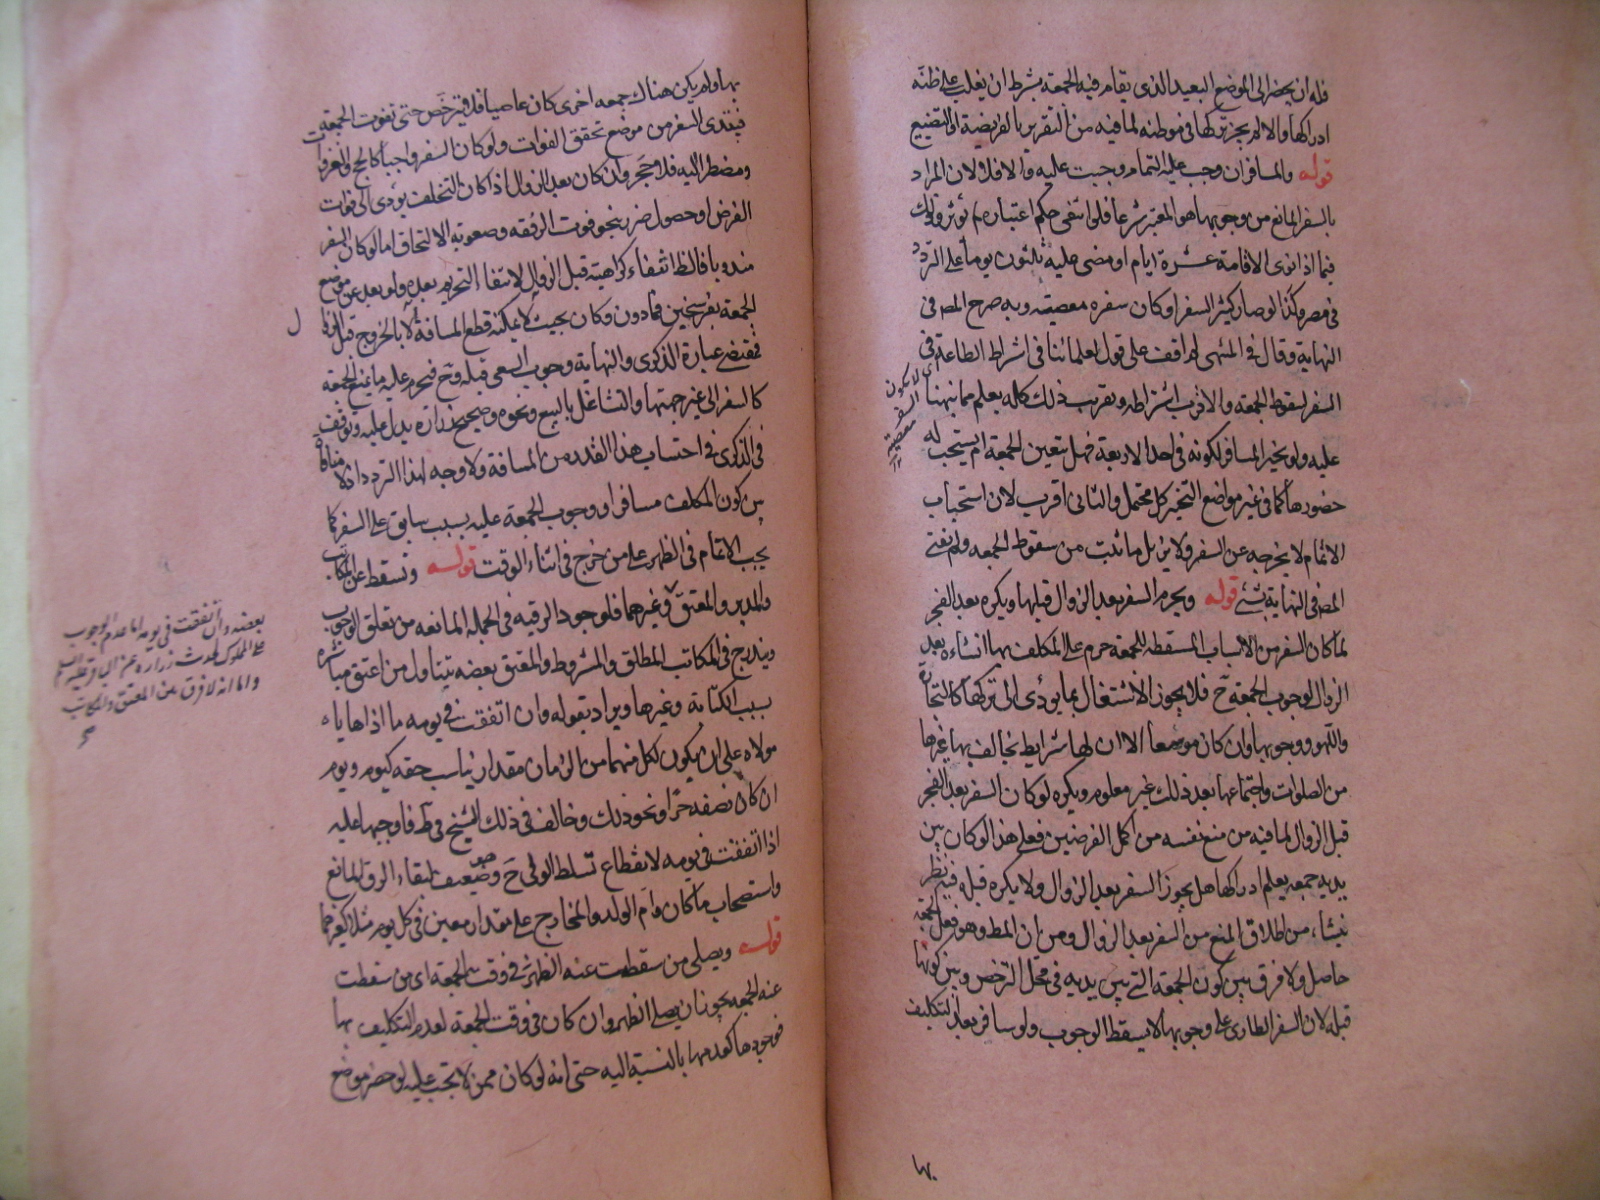 فله ان يحضر الى الموضع البعيد الذى يقام فيه الجمعة بشرط ان يغلب على ظنّه
ادراكها والا لم يجز تركها فى موطنه لما فيه من التقرير بالفريضة او التضييع
قوله والمسافر ان وجب عليه التمام وجبت عليه والا فلا لان المراد
بالسفر المانع من وجوبها هو المعتبر شرعا فلو انتفى حكم اعتباره لم يؤثر وذلك
فيما اذا نوى الاقامة عشرة ايام او مضى عليه ثلثون يوما على التردد
فى مصر وكذا لو صار كثير السفر او كان سفره معصيته وبه صرح المص فى
النهاية وقال فى المنتهى لم اقف على قول لعلمائنا فى اشتراط الطاعة فى
السفر لسقوط الجمعة والاقرب اشتراطه وتقريب ذلك كله يعلم مما نبهنا
اى لا يكون السفر معصية ١٢
عليه ولو تخير المسافر لكونه فى احد الاربعة فهل يتعين الجمعة ام يستحب له
حضورها كما فى غير مواضع التخير كل محتمل والثانى اقرب لان استحباب
الاتمام لا يخرجه عن السفر ولا يزيل ما ثبت من سقوط الجمعة ولم يفت
المص فى النهاية بشئ قوله ويحرم السفر بعد الزوال قبلها ويكره بعد الفجر
لما كان السفر من الاسباب المسقطه للجمعة حرم على المكلف بها انشاءه بعد
الزوال لوجوب الجمعة ح فلا يجوز الاشتغال بما يؤدى الى تركها كالتجارة
واللهو ووجوبها وان كان موسعا الا ان لها شرايط يخالف بها غيرها
من الصلوات واجتماعها بعد ذلك غير معلوم ويكره لو كان السفر بعد الفجر
قبل الزوال لما فيه من منع نفسه من اكمل الفرضين فعلى هذا لو كان بين
يديه جمعة يعلم ادراكها هل يجوز السفر بعد الزوال ولا يكره قبله فيه نظر
ينشأ من اطلاق المنع من السفر بعد الزوال ومن ان المط وهو فعل الجمعة
حاصل ولا فرق بين كون الجمعة التى بين يديه فى محل الترخص وبين كونها
قبله لان السفر الطارى على وجوبها لا يسقط الوجوب ولو سافر بعد التكليف
بها
بها ولم يكن هناك جمعه اخرى كان عاصيا فلا يترخص حتى تفوت الجمعة
فيبتدى السفر من موضع تحقق الفوات ولو كان السفر واجبا كالحج والغزوات
ومضطر اليه فلا حجر وان كان بعد الزوال اذا كان التخلف يؤدى الى فوات
الغرض او حصول ضرر بنحو فوت الرفقه وصعوبة الالتحاق اما لو كان السفر
مندوبا فالظ انتفاء كراهيته قبل الزوال لا انتفا التحريم بعده ولو بعد عن موضع
الجمعة بفرسخين فما دون وكان بحيث لا يمكنه قطع المسافة الا بالخروج قبل الزوال
فمقتضى عبارة الذكرى والنهاية وجوب السعى قبله وح فيحرم عليه ما يمنع الجمعة
كالسفر الى غير جهتها والتشاغل بالبيع ونحوه وصحيح زرارة يدل عليه وتوقف
فى الذكرى فى احتساب هذا القدر من المسافة ولا وجه لهذا التردد اذ لا منافاة
بين كون المكلف مسافرا ووجوب الجمعة عليه بسبب سابق على السفر كما
يجب الاتمام فى الظهر على من خرج فى اثناء الوقت قوله وتسقط عن المكاتب
والمدبر والمعتق وغيرهما فلوجود الرقيه فى الجملة المانعه من تعلق الوجوب
ويندرج فى المكاتب المطلق والمشروط والمعتق بعضه يتناول من اعتق مباشره
بسبب الكتابة وغيرها ويراد بقوله وان اتفقت فى يومه ما اذا هاياه
بعضه وان اتفقت فى يومه اما عدم الوجوب
على المملوك لحديث زرارة عن الباقر عليه السلم
واما انه لا فرق بين المعتق والمكاتب
مولاه على ان يكون لكل منهما من الزمان مقدار يناسب حقه كيوم ويوم
ان كان نصفه حرا ونحو ذلك وخالف فى ذلك الشيخ فى ط فاوجبها عليه
اذا اتفقت فى يومه لانقطاع تسلط المولى ح وضعيف لبقاء الرق المانع
واستصحاب ما كان وام الولد والمخارج على مقدار معين فى كل يوم مثلا كغيرهما
قوله ويصلى من سقطت عنه الظهر فى وقت الجمعة اى من سقطت
عنه الجمعة يجوز ان يصلى الظهر وان كان فى وقت الجمعة لعدم التكليف بها
فوجودها كعدمها بالنسبة اليه حتى انه لو كان ممن لا تجب عليه لو حضر موضع